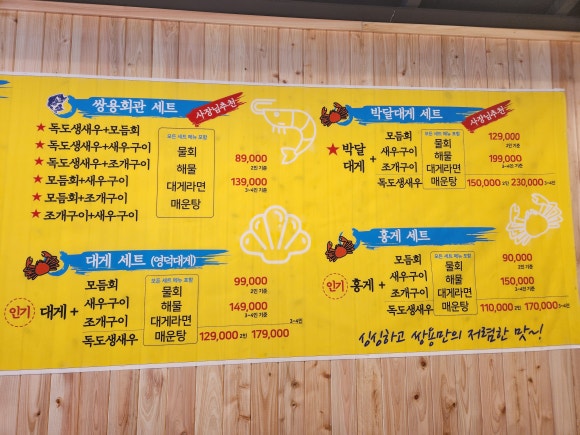 쌍용회관 세트
사장님추천
★ 독도생새우+모듬회
★ 독도생새우+새우구이
★ 독도생새우+조개구이
★ 모듬회+새우구이
★ 모듬회+조개구이
★ 조개구이+새우구이
모든 세트 메뉴 포함
물회
해물
대게라면
매운탕
89,000
2인 기준
139,000
3~4인 기준
박달대게 세트
사장님추천
★ 박달대게 +
모듬회
새우구이
조개구이
독도생새우
모든 세트 메뉴 포함
물회
해물
대게라면
매운탕
129,000
2인 기준
199,000
3~4인 기준
150,000 2인 230,000 3~4인
대게 세트 (영덕대게)
인기 대게 +
모듬회
새우구이
조개구이
독도생새우
모든 세트 메뉴 포함
물회
해물
대게라면
매운탕
99,000
2인 기준
149,000
3~4인 기준
129,000 2인 179,000 3~4인
홍게 세트
인기 홍게 +
모듬회
새우구이
조개구이
독도생새우
모든 세트 메뉴 포함
물회
해물
대게라면
매운탕
90,000
2인 기준
150,000
3~4인 기준
110,000 2인 170,000 3~4인
싱싱하고 쌍용만의 저렴한 맛~!